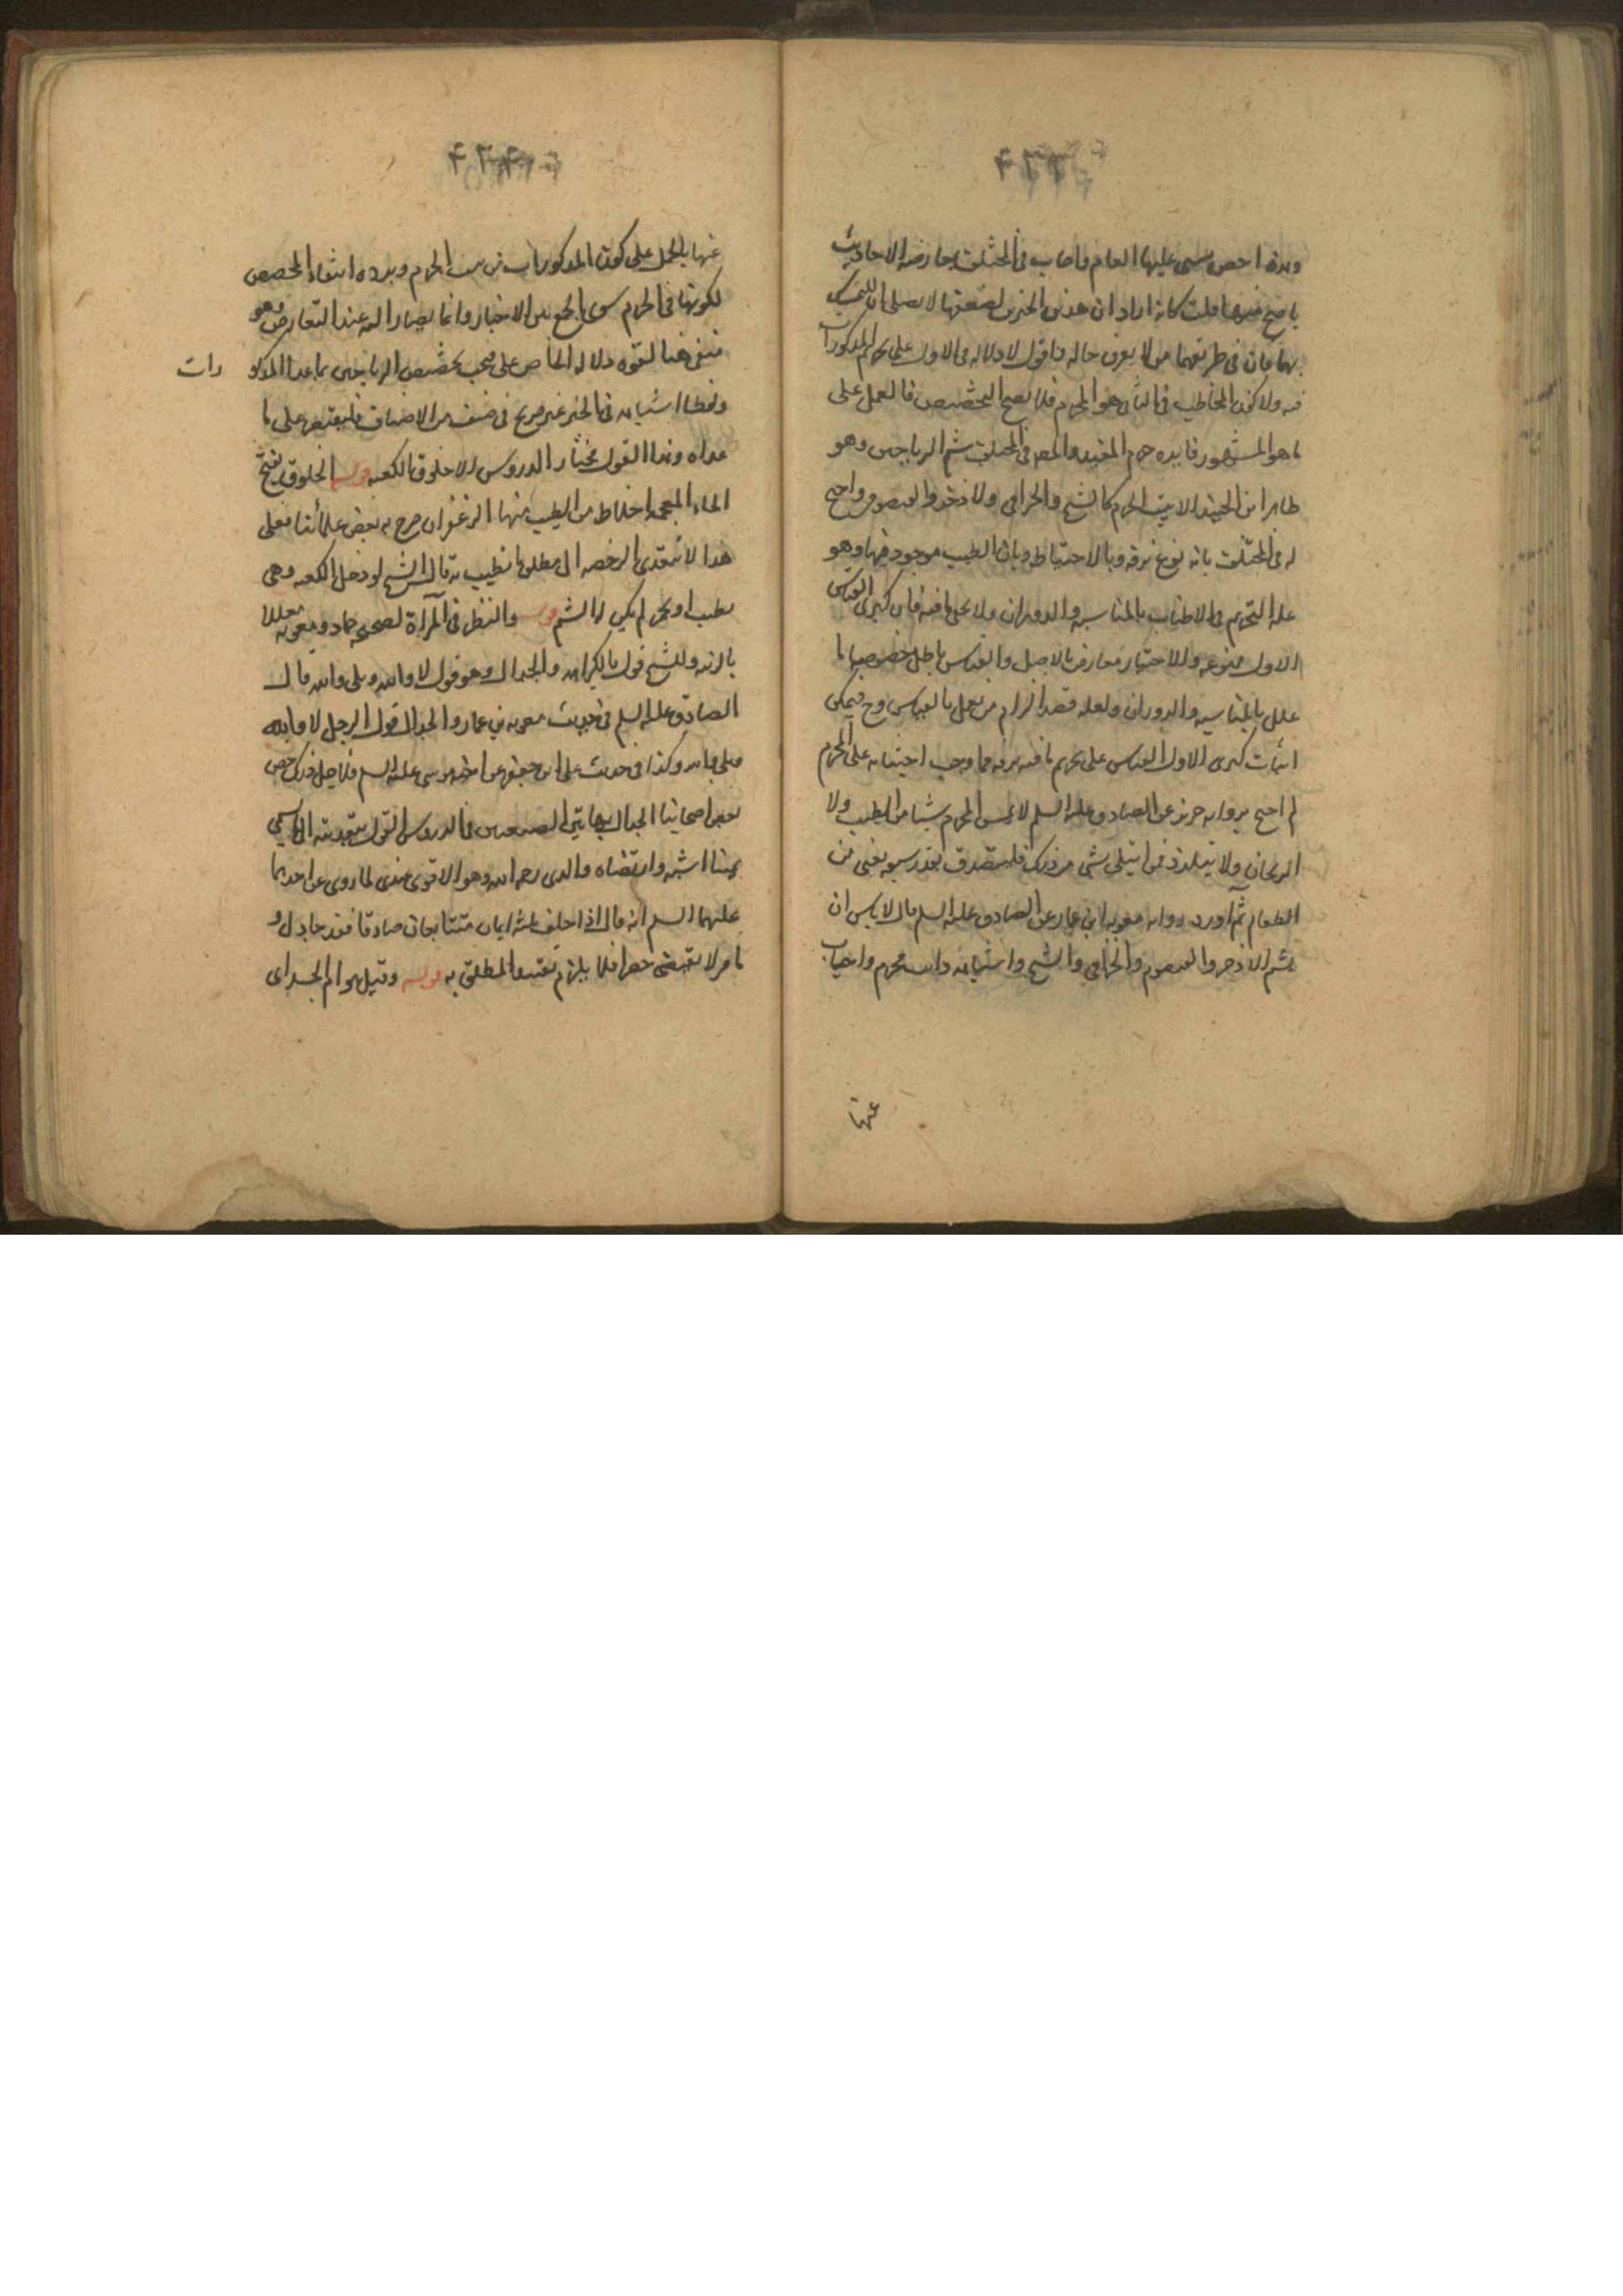 وهذه اخص فيبنى عليها العام واجاب في المختلف بمعارضه الاحاديث
باصح منها قلت كانه اراد ان هذين الخبرين لضعفهما لا يصلحان للتمسك
بهما فان في طريقهما من لا يعرف حاله واقول لا دلاله في الاول على تحريم المذكورات
فيه ولا كون المخاطب في الثانى هو المحرم فلا يصح التخصيص فالعمل على
ما هو المشهور فايده حرم المفيد والمص في المختلف شم الرياحين وهو
ظاهر ابن الجنيد الا نبت الحرم كالشيح والخزامى والاذخر والقيصوم واحتج
له في المختلف بانه نوع ترفه وبالاحتياط وبان الطيب موجود فيها وهو
عله التحريم في الاطياب بالمناسبه والدوران ولا يخلى ما فيه فان كبرى القياس
الاول ممنوعه والاحتياط معارض بالاصل والقياس باطل خصوصا ما
علل بالمناسبه والدوران ولعله قصد الزام من يعمل بالقياس وح فيمكن
اثبات كبرى الاول القياس على تحريم ما فيه ترفه مما وجب اجتنابه على المحرم
ثم احتج بروايه حريز عن الصادق عليه السلم لا يمس المحرم شيئا من الطيب ولا
الريحان ولا يتلذذ فمن ابتلى بشى من ذلك فليتصدق بقدر سعه يعنى من
الطعام ثم اورد روايه معويه ابن عمار عن الصادق عليه السلم قال لا باس ان
يشم الاذخر والقيصوم والخزامى والشيح واشباهه وانت محرم واجاب
عنها
عنها بالحمل على كون المذكورات من نبت الحرم ويرده انتفاء المخصص
لكونها في الحرم سوى الجمع بين الاخبار وانما يصار اليه عند التعارض وهو
منفى هنا لقوه دلاله الخاص على فيجب تخصيص الرياحين بما عدا المذكو رات
ولفظ اشباهه في الخبر غير صريح في صنف من الاصناف فليقتصر على ما
عداه وهذا القول مختار الدروس الا خلوق الكعبه قوله الخلوق بفتح
الخاء المعجمه اخلاط من الطيب منها الزعفران صرح به بعض علمائنا فعلى
هذا لا تتعدى الرخصه الى مطلق ما تطيب به قال الشيخ لو دخل الكعبه وهى
تطيب او تجمر لم يكن له الشم قوله والنظر في المرآة لصحيحه حماد ومعويه معللا
بالزينه وللشيخ قول بالكراهه والجدال وهو قول لا والله وبلى والله قال
الصادق عليه السلم في حديث معويه بن عمار والجدال قول الرجل لا والله
وبلى والله وكذا في حديث على ابن جعفر عن اخيه موسى عليه السلم فلاجل ذلك خص
بعض اصحابنا الجدال بهاتين الصيغتين وفي الدروس القول بتعديته الى ما يسمى
يمينا اشبه وارتضاه والدى رحمه الله وهو الاقوى عندى لما روى عن احدهما
عليهما السلم انه قال اذا حلف بثلثه ايمان متتابعات صادقا فقد جادل و
ما مر لا يقتضى حصرا فلا يلزم تقييد المطلق به قوله وقتل هوام الجسد اى